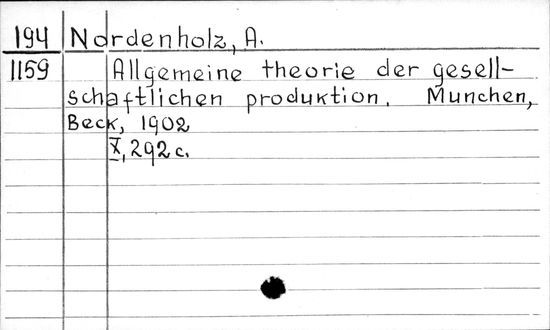 194 Nordenholz, A.
1159 Allgemeine theorie der gesell-
schaftlichen produktion. Munchen,
Beck, 1902
X, 292 c.